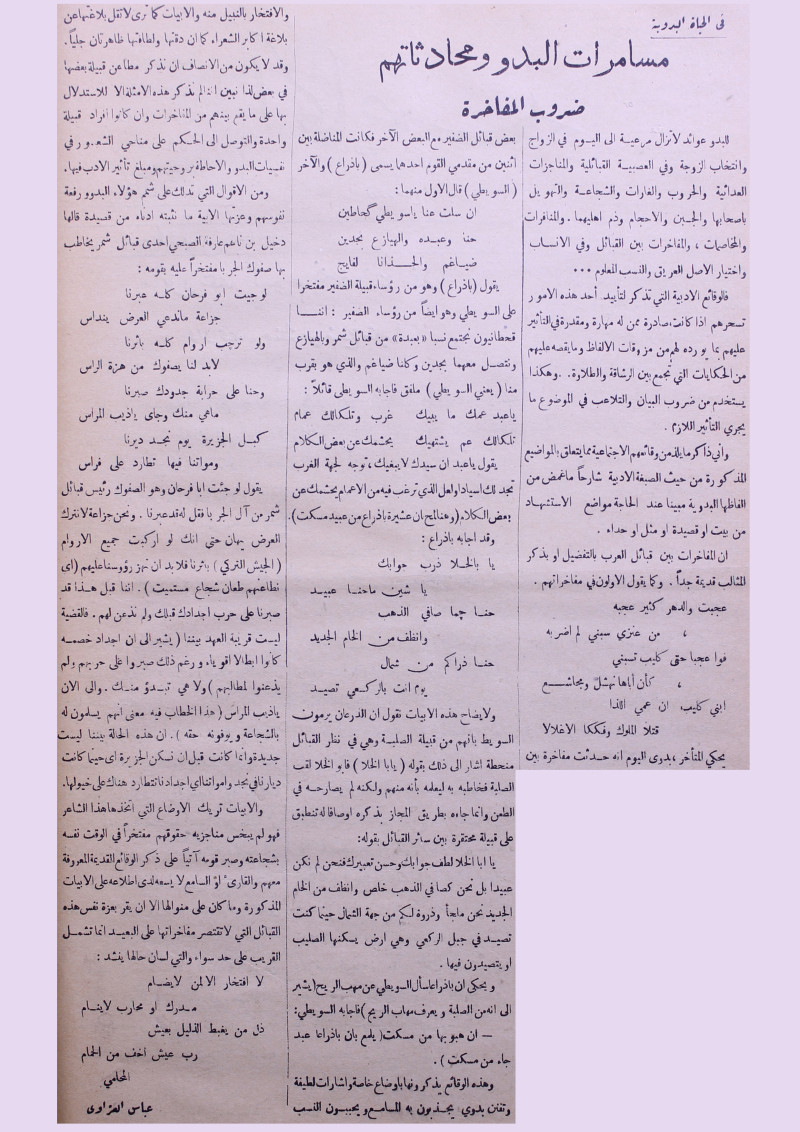 في الحياة البدوية
مسامرات البدو ومحادثاتهم
ضروب المفاخرة
للبدو عوائد لاتزال مرعية الى اليوم في الزواج
وانتخاب الزوجة وفي العصبية القبائلية والمناجزات
العدائية والحروب والغارات والشجاعة والتهويل
باصحابها والجبن والاحجام وذم اهليهما. والمنافرات
والمخاصمات ، والمفاخرات بين القبائل وفي الانساب
واختيار الاصل العريق والنسب المعلوم ...
فالوقائع الادبية التي تذكر لتأييد أحد هذه الامور
تسحرهم اذا كانت صادرة ممن له مهارة ومقدرة في التأثير
عليهم بما يورده لهم من مزوقات الالفاظ ومايقصه عليهم
من الحكايات التي تجمع بين الرشاقة والطلاوة. وهكذا
يستخدم من ضروب البيان والتلاعب في الموضوع ما
يجري التأثير اللازم .
واني ذاكر مايلذ من وقائعهم الاجتماعية مما يتعلق بالمواضيع
المذكورة من حيث الصبغة الادبية شارحاً ماغمض من
الفاظها البدوية مبينا عند الحاجة مواضع الاستشهاد
من بيت او قصيدة او مثل او حداء .
ان المفاخرات بين قبائل العرب بالتفضيل او بذكر
المثالب قديمة جداً . وكما يقول الاولون في مفاخراتهم .
عجبت والدهر كثير عجبه
، من عنزي سبني لم اضربه
فوا عجبا حتى كليب تسبني
، كأن أباها نهشل ومجاشع
ابني كليب ان عمي اللذا
قتلا الملوك وفككا الاغلالا
يحكي المتأخر ، بدوى اليوم انه حدثت مفاخرة بين
بعض قبائل الضفير مع البعض الآخر فكانت المناضلة بين
اثنين من مقدمي القوم احدهما يسمى ( باذراع ) والآخر
( السويطي ) قال الاول منهما :
ان سلت عنا ياسويطي گحاطين
حنا وعبده والهيازع بجدين
ضياغم والحذانا لفايج
يقول (باذراع ) وهو من رؤساء قبيلة الضفير مفتخرا
على السويطي وهو ايضاً من رؤساء الضفير : اننا
قحطانيون نجتمع نسبا «بعبدة» من قبائل شمر وبالهيازع
ونتصل معهما بجدين وكنا ضياغم والذي هو بقرب
منا ( يعني السويطي ) ملفق فاجابه السويطى قائلاً :
ياعبد عمك ما يبيك غرب وتلكالك عمام
تلكالك عم يشتهيك يحشمك عن بعض الكلام
يقول ياعبد ان سيدك لا يبغيك ، توجه لجهة الغرب
تجد لك اسيادا ولعل الذي ترغب فيه من الاعمام يحشمك عن
بعض الكلام ( وهنا المح ان عشيرة باذراع من عبيد مسكت).
وقد اجابه باذراع :
يا بالخلا ذرب حوابك
يا شين ماحنا عبيد
حنا چما صافي الذهب
وانظف من الخام الجديد
حنا ذراكم من شمال
يوم انت بالركعي تصيد
ولايضاح هذه الابيات نقول ان الذرعان يرمون
السويط بانهم من قبيلة الصلبة وهي في نظر القبائل
منحطة اشار الى ذلك بقوله ( يابا الخلا ) فابو الخلا لقب
الصلبة فخاطبه به ليعلمه بأنه منهم ولكنه لم يصارحه في
الطعن وانما جاءه بطريق المجاز بذكره اوصافا له تنطبق
على قبيلة محتقرة بين سائر القبائل بقوله:
يا ابا الخلا لطف جوابك وحسن تعبيرك فنحن لم نكن
عبيدا بل نحن كصافي الذهب خاص وانظف من الخام
الجديد نحن ملجأ وذروة لكم من جهة الشمال حينما كنت
تصيد في جبل الركعي وهي ارض يسكنها الصليب
او يتصيدون فيها .
ويحكى ان باذراع سأل السويطي عن مهب الريح ( يشير
الى انه من الصلبة ويعرف مهاب الريح ) فاجابه السويطي:
— ان هبوبها من مسكت ( يلمع بان باذراعا عبد
جاء من مسكت ) .
وهذه الوقائع يذكرونها باوضاع خاصة واشارات لطيفة
وتفنن بدوي يجذبون به السامع ويحببون النسب
والافتخار بالنبيل منه والابيات كما ترى لاتقل بلاغتها عن
بلاغة اكابر الشعراء كما ان دقتها ولطافتها ظاهرتان جلياً.
وقد لا يكون من الانصاف ان نذكر مطاعن قبيلة بعضها
في بعض لذا نبين اننا لم نذكر هذه الامثلة الا للاستدلال
بها على مايقع بينهم من المفاخرات وان كانوا افراد قبيلة
واحدة والتوصل الى الحكم على مناحي الشعور في
نفسيات البدو والاحاطة بروحيتهم ومبلغ تأثير الادب فيها.
ومن الاقوال التي تدلك على شمم هؤلاء البدو ورفعة
نفوسهم وعزتها الابية ما نثبته ادناه من قصيدة قالها
دخيل بن ناعم عارفة الصبحي احدى قبائل شمر يخاطب
بها صفوك الجربا مفتخراً عليه بقومه :
لو جيت ابو فرحان كله عبرنا
جزاعة ماندعي العرض ينداس
ولو ترجب اروام كله باثرنا
لابد لنا يصفوك من هزة الراس
وحنا على حرابة جدودك صبرنا
ماهي منك وجاى ياذيب المراس
كبل الجزيرة يوم نجد ديرنا
ومواتنا فيها تطارد على فراس
يقول لو جئت ابا فرحان وهو الصفوك رئيس قبائل
شمر من آل الجربا فقل له قد عبرنا . ونحن جزاعة لانترك
العرض يهان حتى انك لو اركبت جميع الاروام
( الجيش التركي ) باثرنا فلابد ان نهز رؤوسنا عليهم (اى
نطاعنهم طعان شجاع مستميت ) . اننا قبل هذا قد
صبرنا على حرب اجدادك قبلك ولم نذعن لهم . فالقضية
ليست قريبة العهد بيننا ( يشير الى ان اجداد خصمه
كانوا ابطالا اقوياء ورغم ذلك صبروا على حربهم ولم
يذعنوا لمطالبهم ) ولا هي تبدؤ منك . والى الان
ياذيب المراس ( هذا الخطاب فيه معنى انهم يسلمون له
بالشجاعة ويوفونه حقه ) . ان هذه الحالة بيننا ليست
جديدة وانما كانت قبل ان نسكن الجزيرة اى حينما كانت
ديارنا في نجد وامواتنا اي اجدادنا تتطارد هناك على خيولها.
والابيات تريك الاوضاع التي اتخذها هذا الشاعر
فهو لم يبخس مناجزيه حقوقهم مفتخراً في الوقت نفسه
بشجاعته وصبر قومه آتياً على ذكر الوقائع القديمة المعروفة
معهم والقارئ او السامع لا يسعه لدى اطلاعه على الابيات
المذكورة وما كان على منوالها الا ان يقر بعزة نفس هذه
القبائل التي لا تقتصر مفاخراتها على البعيد انما تشمل
القريب على حد سواء والتي لسان حالها ينشد :
لا افتخار الا لمن لا يضام
مدرك او محارب لاينام
ذل من يغبط الذليل بعيش
رب عيش اخف من الحمام
المحامي
عباس العزاوى